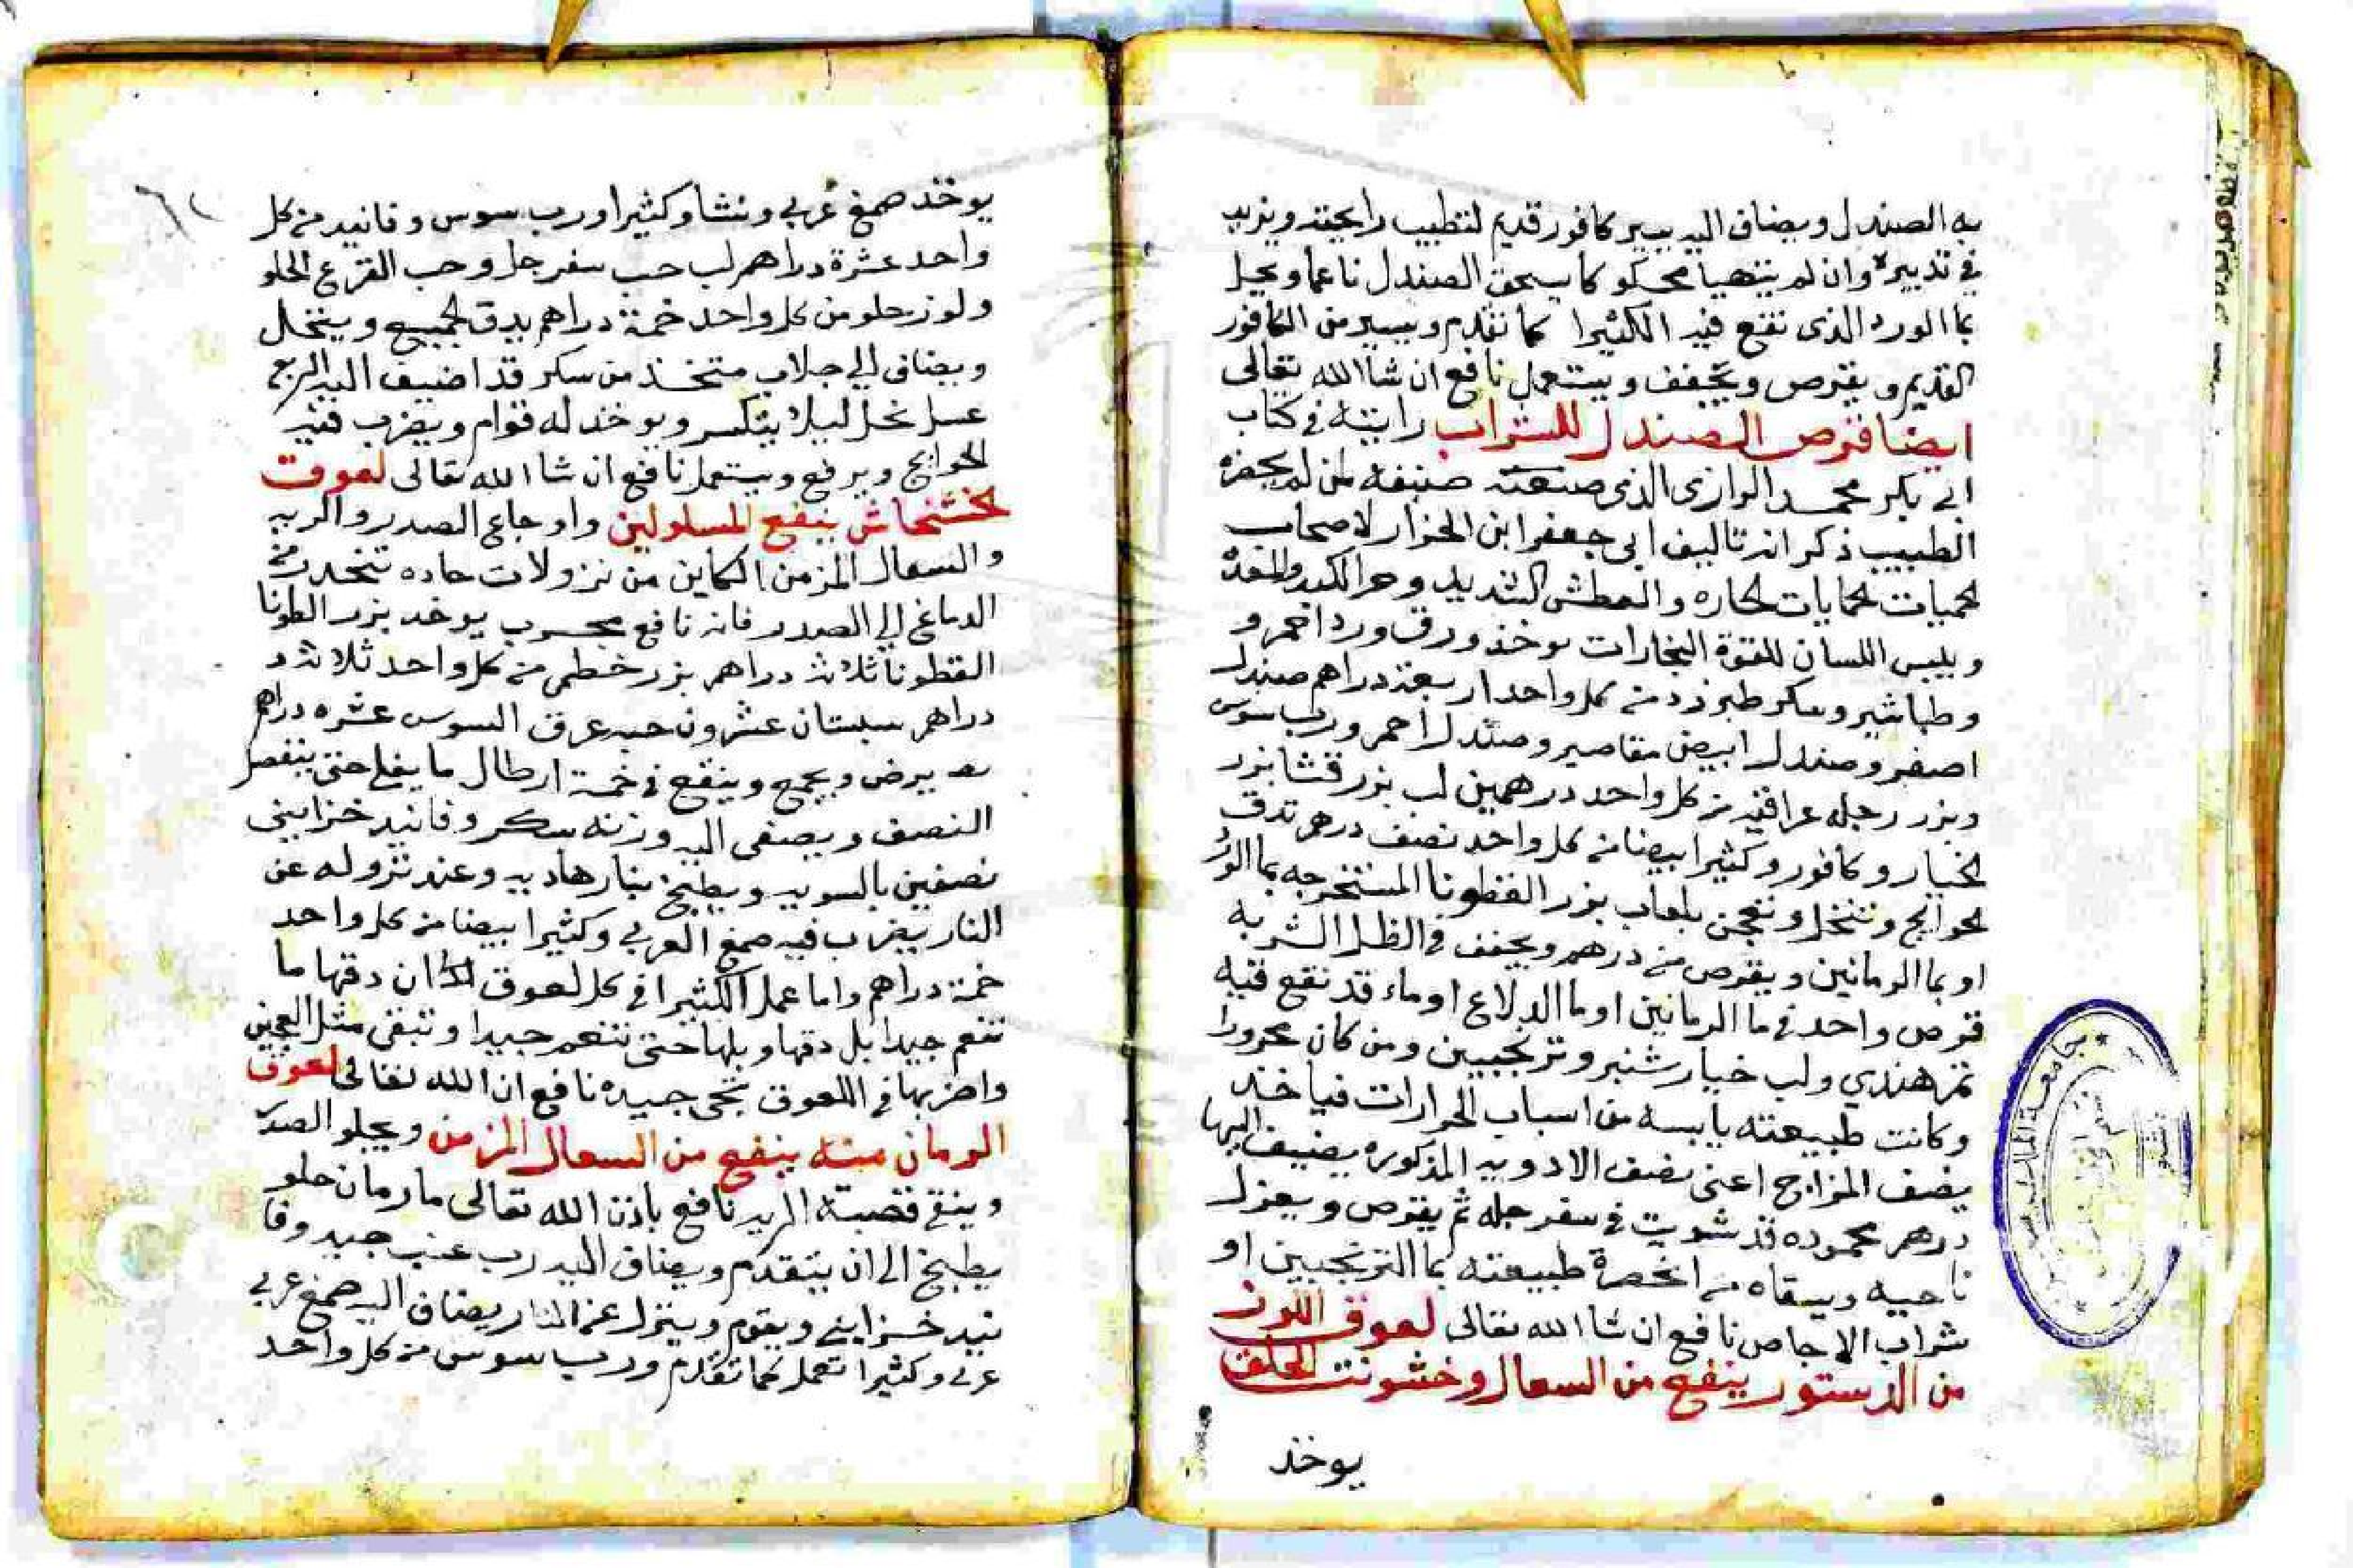 به الصندل ويضاف اليه يسير كافور قديم لتطييب رايحته ويزيد
في تدبيره وان لم يتهيا محكو كا يسحق الصندل ناعما ويحيل
بما الورد الذى نقع فيه الكثيرا كما تقدم ويسير من الكافور
القديم ويقرص ويجفف ويستعمل نافع ان شا الله تعالى
ايضا قرص الصندل للستراب رايته في كتاب
ابي بكر محمد الرازى الذى صنعته صنيفه لمن لم يحضره
الطبيب ذكر انه تاليف ابى جعفر ابن الجزار لاصحاب
الحميات الحمايات الحاره والعطش الشديد وحر الكبد والمعدة
ويبس اللسان للقوة البخارات يوخذ ورق ورد احمر و
وطباشير وسكر طبرزد من كل واحد اربعة دراهم صندل
اصفر وصندل ابيض مقاصير وصندل احمر ورب سوس
وبزر رجله عراقيه من كل واحد درهمين لب بزر قشا بزر
الخيار وكافور وكثيرا بيضا من كل واحد نصف درهم تدق
الحوايج وتنخل وتعجن بلعاب بزر القطونا المستخرجه بما الورد
او بما الرمانين ويقرص من درهم ويجفف في الظل الشربه
قرص واحد في ما الرمانين او ما الدلاع او ماء قد نقع فيه
تمر هندي ولب خيار شنبر وترنجبين ومن كان محرورا
وكانت طبيعته يابسه من اسباب الحرارات فياخذ
نصف المزاج اعنى نصف الادويه المذكوره يضيف اليها
درهم محموده قد شويت في سفرجله ثم يقرص ويعزل
ناحيه ويسقاه من انحصرة طبيعته بما الترنجبين او
شراب الاجاص نافع ان شا الله تعالى لعوق اللوز
من الدستور ينفع من السعال وخشونت الحلق
يوخذ
يوخذ صمغ عربي ونشا وكثيرا ورب سوس وفانيد من كل
واحد عشرة دراهم لب حب سفرجل وحب القرع الحلو
ولوز حلو من كل واحد خمسة دراهم يدق الجميع وينخل
ويضاف الي جلاب متخذ من سكر قد اضيف اليه الربع
عسل نحل ليلا يتكسر ويوخذ له قوام ويضرب فيه
الحوايج ويرفع ويستعمل نافع ان شا الله تعالى لعوق
الخشخاش ينفع المسلولين واوجاع الصدر والريه
والسعال المزمن الكاين من نزولات حاده تنحدر من
الدماغ الي الصدر فانه نافع مجرب يوخذ بزر الطونا
القطونا ثلاثة دراهم بزر خطمى من كل واحد ثلاثة د
دراهم سبستان عشرون حبه عرق السوس عشره دراهم
يرض ويجمع وينقع في خمسة ارطال ما يغلا حتى ينقص
النصف ويصفى اليه وزنه سكر وفانيد خزايني
نصفين بالسويه ويطبخ بنار هاديه وعند نزوله عن
النار يضرب فيه صمغ العربي وكثيرا بيضا من كل واحد
خمسة دراهم واما عمل الكثيرا في كل لعوق اذا ان دقها ما
تنعم جيدا بل دقها وبلها حتى تنعم جيدا وتبقى مثل العجين
واضربها في اللعوق تجى جيده نافع ان الله تعالى لعوق
الرمان منه ينفع من السعال المزمن ويجلو الصد
وينقي قصبة الريه نافع باذن الله تعالى ما رمان حلو
يطبخ الى ان يتقدم ويضاف اليه رب عنب جيد وفا
نيد خزايني ويقوم وينزل عن النار يضاف اليه صمغ عربي
عربي وكثيرا تعمل كما تقدم ورب سوس من كل واحد